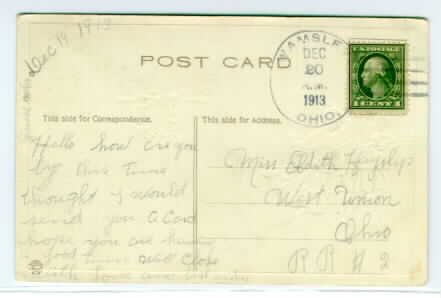 Dec 19 1913
POST CARD
WAMSLE
DEC
20
A.M.
1913
OHIO.
U.S. POSTAGE
1 CENT 1
This side for Correspondence.
This side for Address.
Hello how are you
by this time
thought I would
send you a Card
hope you are having
a good time will close
with love and
Miss Edith Hayslip
West Union
Ohio
R R # 2